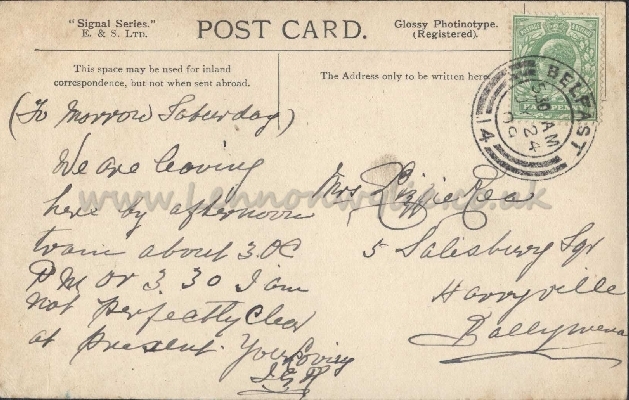 "Signal Series."
E. & S. LTD.
POST CARD.
Glossy Photinotype.
(Registered).
This space may be used for inland
correspondence, but not when sent abroad.
The Address only to be written here.
BELFAST
AM
24
14
(To Morrow Saturday)
We are leaving
here by afternoon
train about 3.0C
PM or 3.30 I am
not perfectly clear
at present. Your Loving
Mrs Lizzie Rea
5 Salisbury Sqr
Harryville
Ballymena